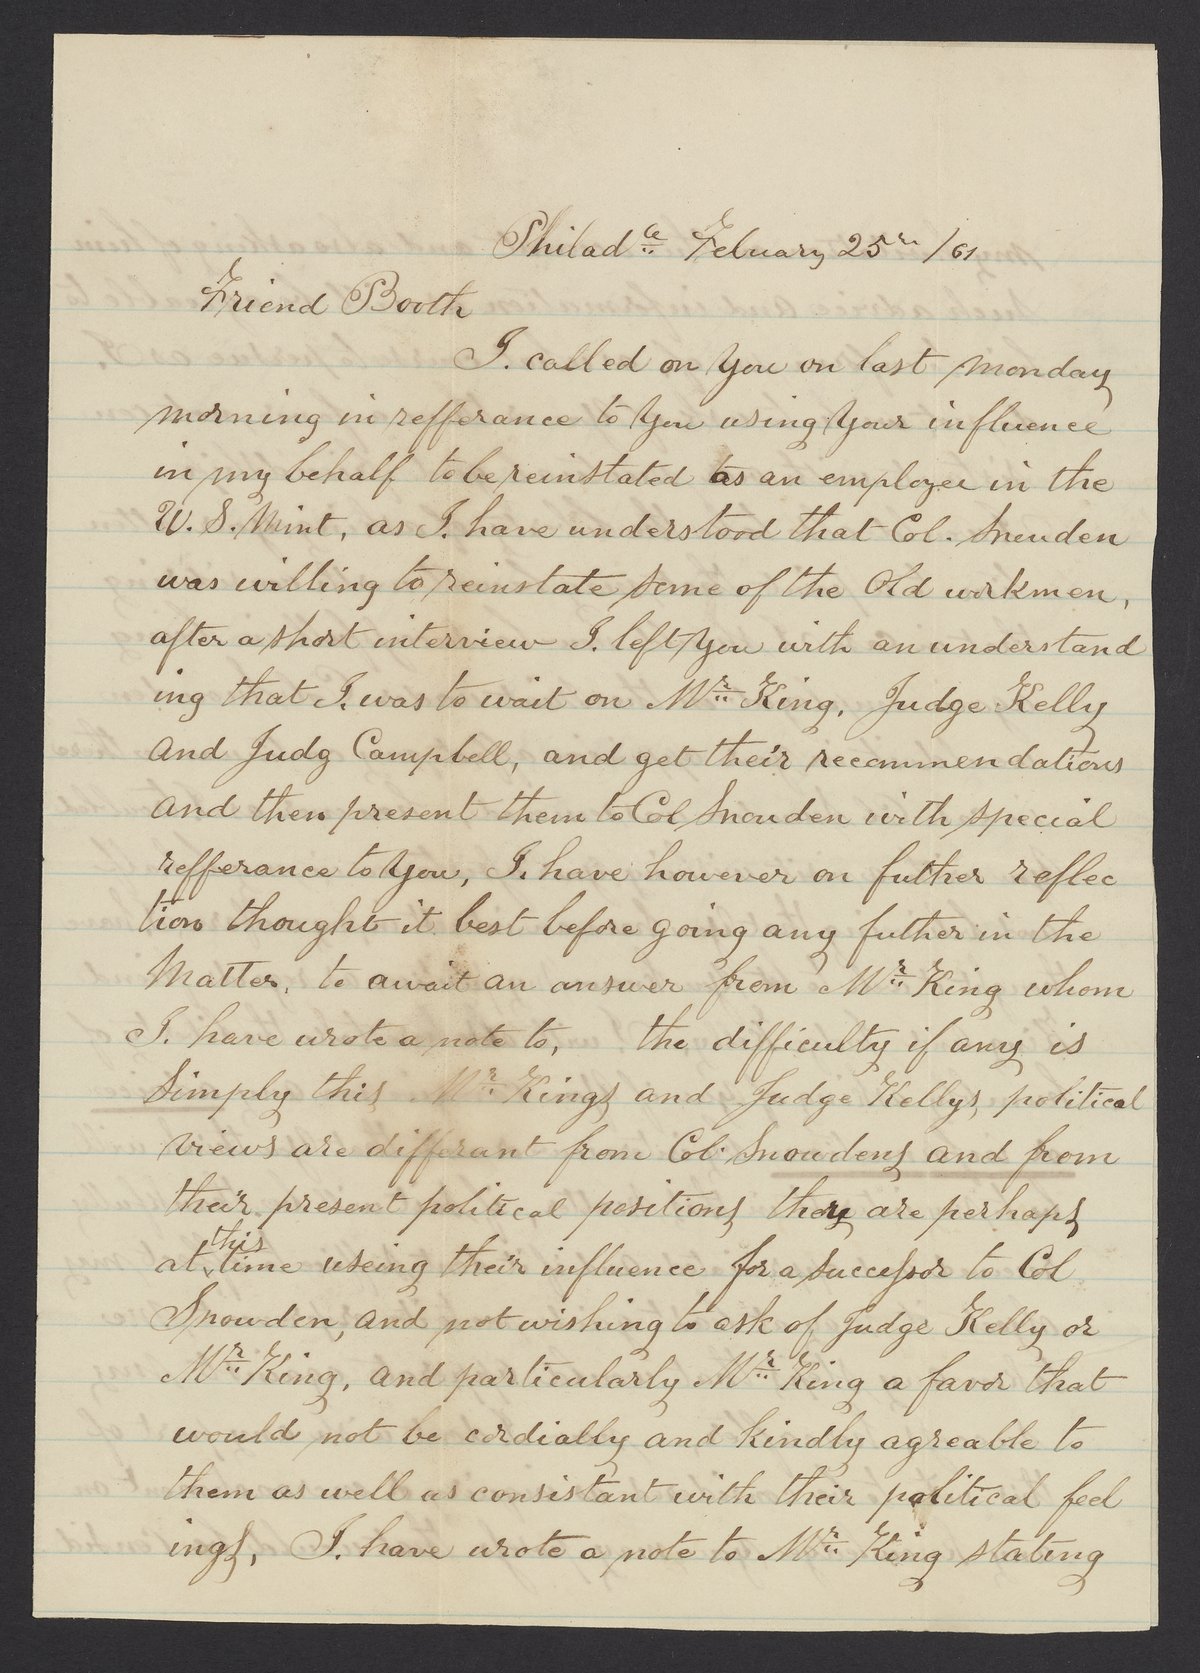 Philad^e Febuary 25^th /61
Friend Booth
I. called on you on last monday
morning in refferance to you using your influence
in my behalf to be reinstated as an employee in the
U. S. Mint, as I. have understood that Col. Snowden
was willing to reinstate some of the Old workmen,
after a short interview I. left you with an understand
ing that I. was to wait on Mr King, Judge Kelly
and Judg Campbell, and get their recommendations
and then present them to Col Snowden with special
refferance to you, I. have however on futher reflec
tion thought it best before going any futher in the
Matter, to await an answer from Mr King whom
I. have wrote a note to, the difficulty if any is
Simply this Mr Kings and Judge Kellys political
views are differant from Col. Snowdens and from
their present political positions they are perhaps
this
at time useing their influence for a successor to Col
Snowden, and not wishing to ask of Judge Kelly or
Mr King, and particularly Mr King a favor that
would not be cordially and kindly agreable to
them as well as consistant with their political feel
ings, I. have wrote a note to Mr King stating